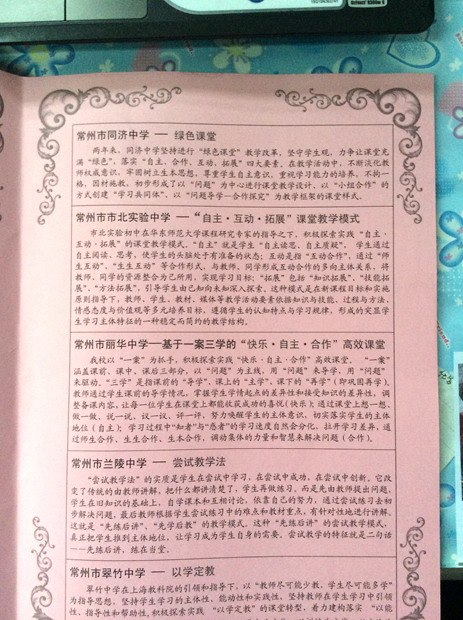 常州市同济中学 — 绿色课堂
两年来，同济中学坚持进行“绿色课堂”教学改革，坚守学生观，力争让课堂充
满“绿色”，落实“自主、合作、互动、拓展”四大要素，在教学活动中，不断淡化教
师权威意识，牢固树立生本思想，尊重学生自主意识，重视学习能力的培养，不拘一
格，因材施教，初步形成了以“问题”为中心进行课堂教学设计、以“小组合作”的
方式创建“学习共同体”、以“问题导学—合作探究”为教学框架的课堂样式。
常州市市北实验中学 — “自主·互动·拓展”课堂教学模式
市北实验初中在华东师范大学课程研究专家的指导之下，积极探索实践“自主·
互动·拓展”的课堂教学模式。“自主”就是学生“自主读思、自主质疑”， 学生通过
自主阅读、思考，使学生的头脑处于有准备的状态；互动是指“互动合作”，通过“师
生互动”、“生生互动”等合作形式，与教师、同学形成互动合作的多向主体关系，将
教师、同学的资源整合为己所用，实现学习目标；“拓展”包括“知识拓展”、“技能拓
展”、“方法拓展”，引导学生由已知向未知深入探索。这种模式是在新课程目标和实施
原则指导下，教师、学生、教材、媒体等教学活动要素依据知识与技能、过程与方法、
情感态度与价值观等多元培养目标，遵循学生的认知特点与学习规律，形成的突显学
生学习主体特征的一种稳定而简约的教学结构。
常州市丽华中学—基于一案三学的“快乐·自主·合作”高效课堂
我校以“一案”为抓手，积极探索实践“快乐·自主·合作”高效课堂。 “一案”
涵盖课前、课中、课后三部分，以“问题”为主线，用“问题”来导学，用“问题”
来驱动。“三学”是指课前的“导学”、课上的“主学”、课下的“再学”（即巩固再学）。
教师通过学生课前的导学情况，掌握学生学情起点的差异性和接受知识的差异性，调
整备课内容，让每一位学生在课堂上都能收获成功的喜悦（快乐）；通过课堂上想一想、
做一做、说一说、议一议、评一评，努力唤醒学生的主体意识，切实落实学生的主体
地位（自主）；学习过程中“知者”与“惑者”的学习速度自然会分化，拉开学习差异，通
过师生合作、生生合作、生本合作，调动集体的力量和智慧来解决问题（合作）。
常州市兰陵中学 — 尝试教学法
“尝试教学法”的实质是学生在尝试中学习，在尝试中成功，在尝试中创新。它改
变了传统的由教师讲解，把什么都讲清楚了，学生再做练习，而是先由教师提出问题，
学生在旧知识的基础上，自学课本和互相讨论，依靠自己的努力，通过尝试练习去初
步解决问题，最后教师根据学生尝试练习中的难点和教材重点，有针对性地进行讲解。
这就是“先练后讲”、“先学后教”的教学模式。这种“先练后讲”的尝试教学模式，
真正把学生推到主体地位，让学习成为学生自身的需要。尝试教学的特征就是二句话
——先练后讲，练在当堂。
常州市翠竹中学 — 以学定教
翠竹中学在上海教科院的引领和指导下，以“教师尽可能少教，学生尽可能多学”
为指导思想，坚持学生学习的主体性、能动性和实践性，坚持教师在学生学习中引领
性、指导性和帮助性，积极探索实践 “以学定教”的课堂转型，着力建构落实 “以能